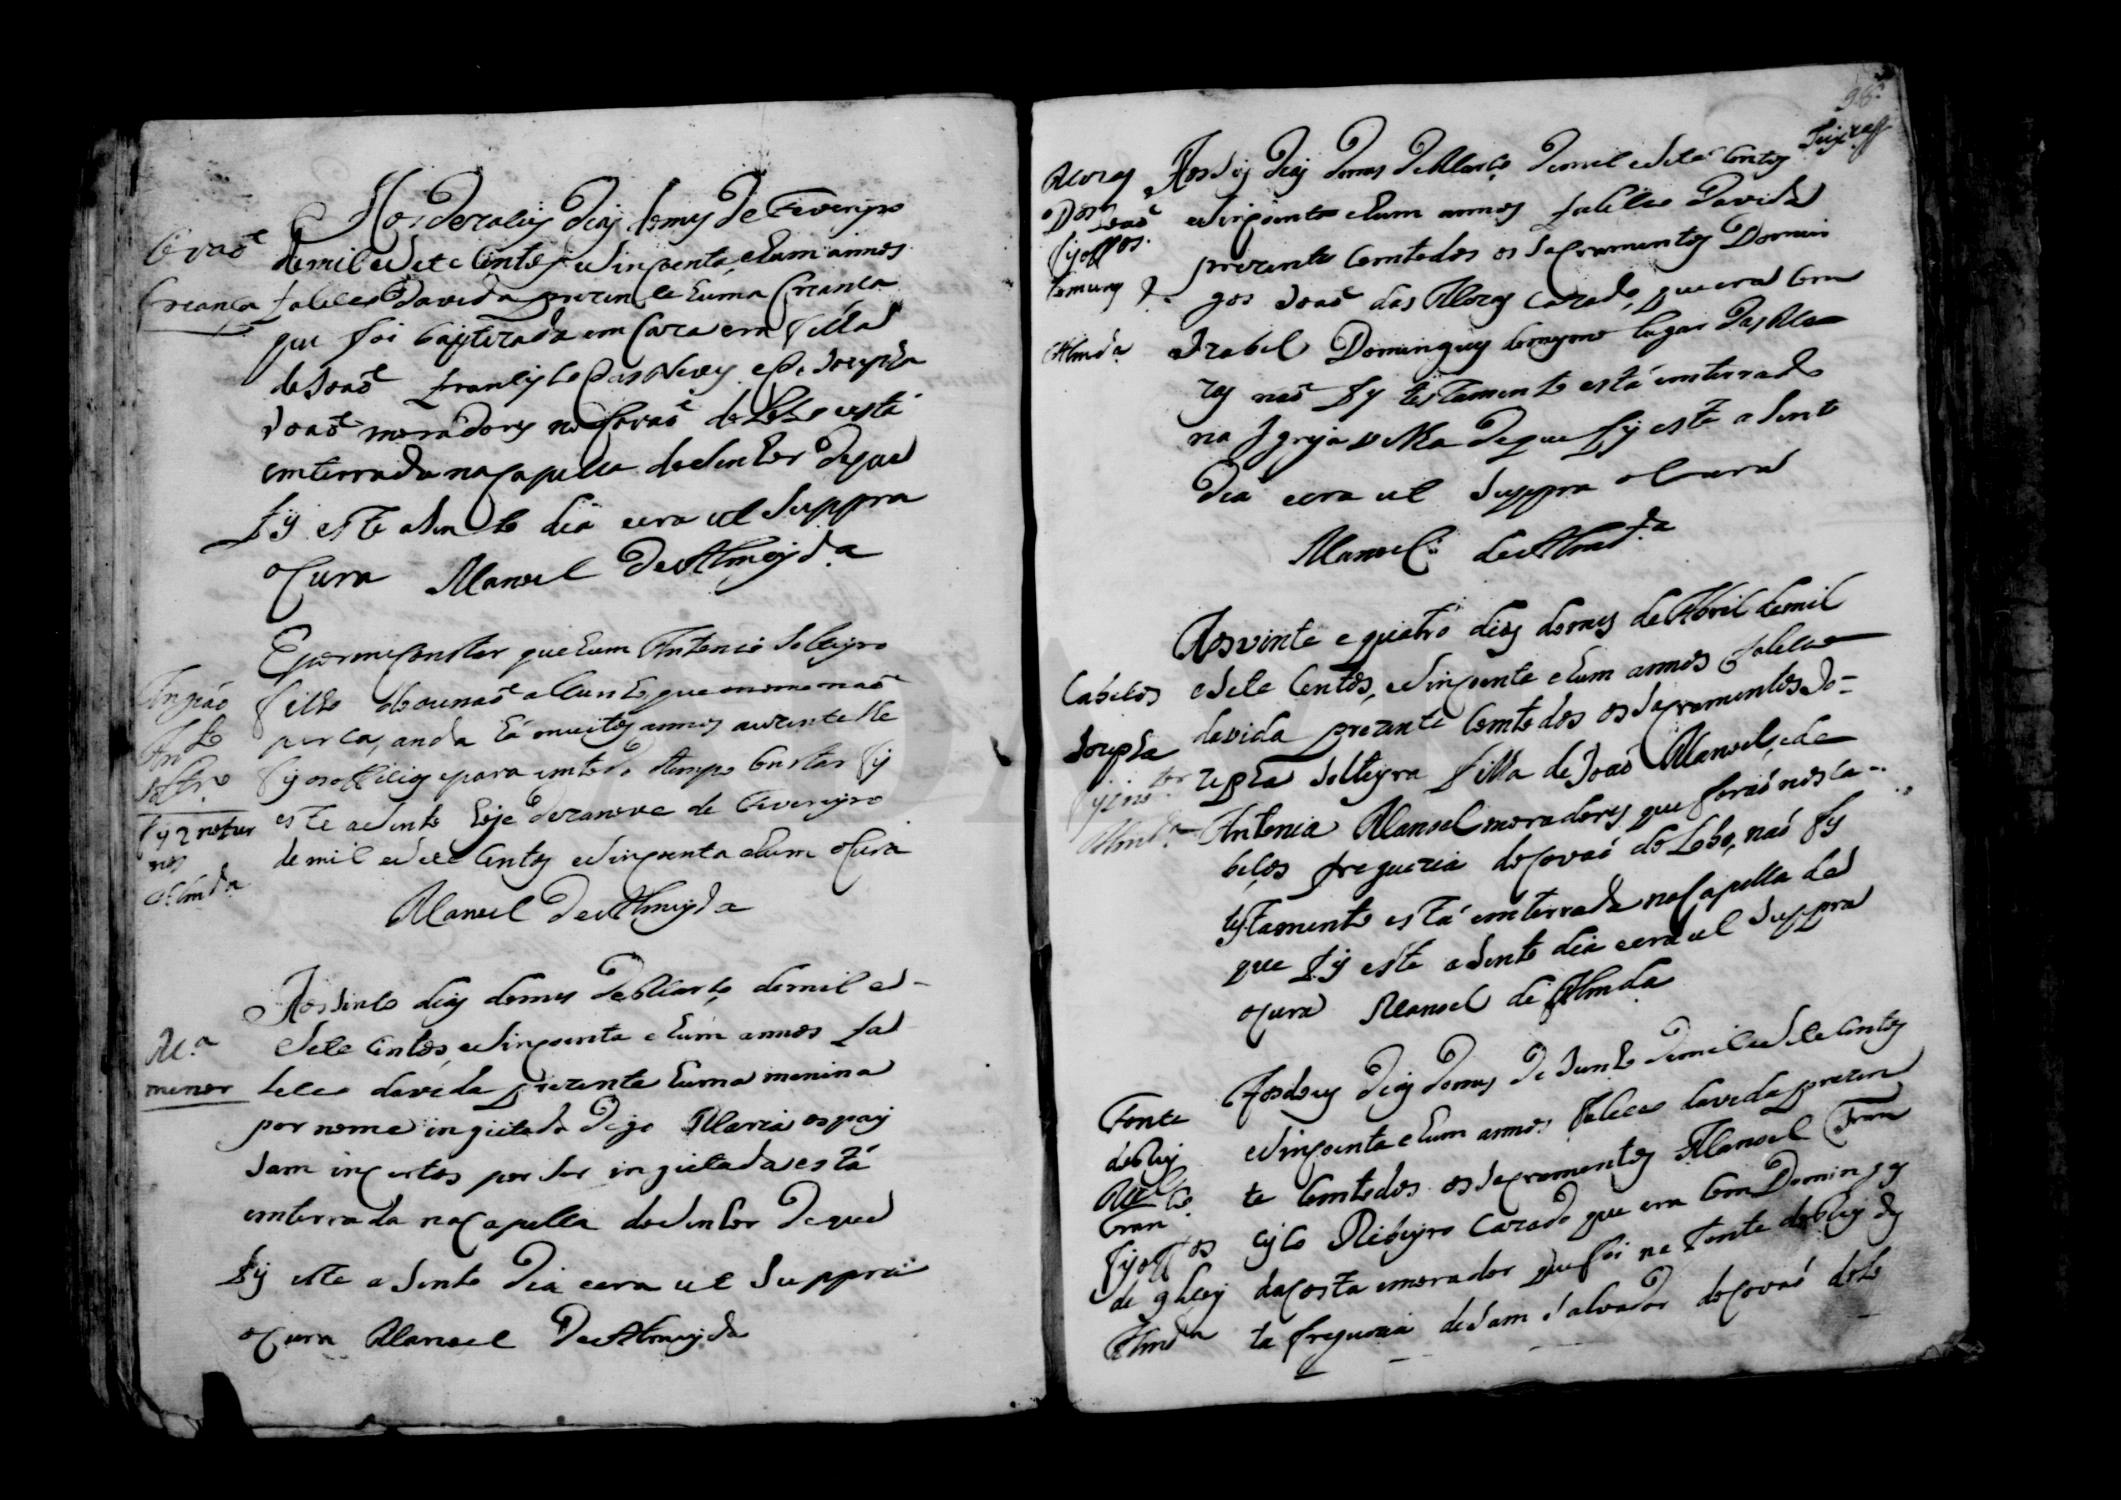 Covaõ
Criança
Aos dezaseis dias do mes de Fevereyro
de mil e sete centos e sincoenta e hum annos
faleceo da vida prezente huma Criança
que foi baptizada em Caza era filha
de Joaõ Francisco das Neves e de Josepha
Joaõ moradores no Covaõ do Lobo está
enterrada na Capella do Senhor de que
fis este asento dia e era ut suppra
o Cura Manoel de Almeyda
Ant.o
Soltr.o
fis 2 noturnos
Almd.a
E por me Constar que hum Antonio Solteyro
filho
anda há muitos annos auzente lhe
fis os officios e para em todo o tempo Constar fis
este asento hoje dezanove de Fevereyro
de mil e sete centos e sincoenta e hum o Cura
Manoel de Almeyda
M.a
menor
Aos sinco dias do mes de Março de mil e
sete centos e sincoenta e hum annos fa
leceo da vida prezente huma menina
por nome ingeitada digo Maria os pays
sam incertos por ser ingeitada está
enterrada na Capella do Senhor de que
fis este asento dia e era ut suppra
o Cura Manoel de Almeyda
98
Mozes
D.os Joaõ
fis off.os
Almd.a
Aos seis dias do mes de Março de mil e sete centos
e sincoenta e hum annos faleceo da vida
prezente com todos os Sacramentos Domin
gos Joaõ das Mozes cazado que era com
Izabel Domingues do mesmo lugar das Mo
zes naõ fes testamento está enterrado
na Igreja velha de que fis este asento
dia e era ut suppra o Cura
Manoel de Almd.a
Cabeços
Josepha
Almd.a
Aos vinte e quatro dias do mes de Abril de mil
e sete centos e sincoenta e hum annos faleceo
da vida prezente com todos os Sacramentos Jo=
zepha Solteyra filha de Joaõ Manoel e de
Antonia Manoel moradores que foraõ nos Ca-
beços freguezia do Covaõ do Lobo, naõ fes
testamento está enterrada na Capella de
que fis este asento dia e era ut suppra
o Cura Manoel de Almda
Fonte
Mel
Fran.co
fis off.os
de 9 liçoĩs
Almd.a
Aos dous dias do mes de Junho de mil e sete centos
e sincoenta e hum annos faleceo da vida prezen
te com todos os Sacramentos Manoel Fran
cisco Ribeyro cazado que era com Domingas
da Costa morador que foi na Fonte
ta freguezia de Sam Salvador do Covaõ do Lo